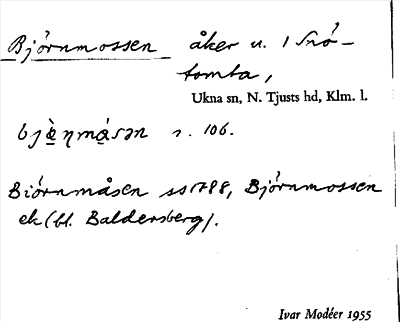 Björnmossen åker u. 1 Snö-
tomta,
Ukna sn, N. Tjusts hd, Klm. l.
s. 106.
Biörnmåsen ss 1788, Björnmossen
ek (bl. Baldersberg).
Ivar Modéer 1955